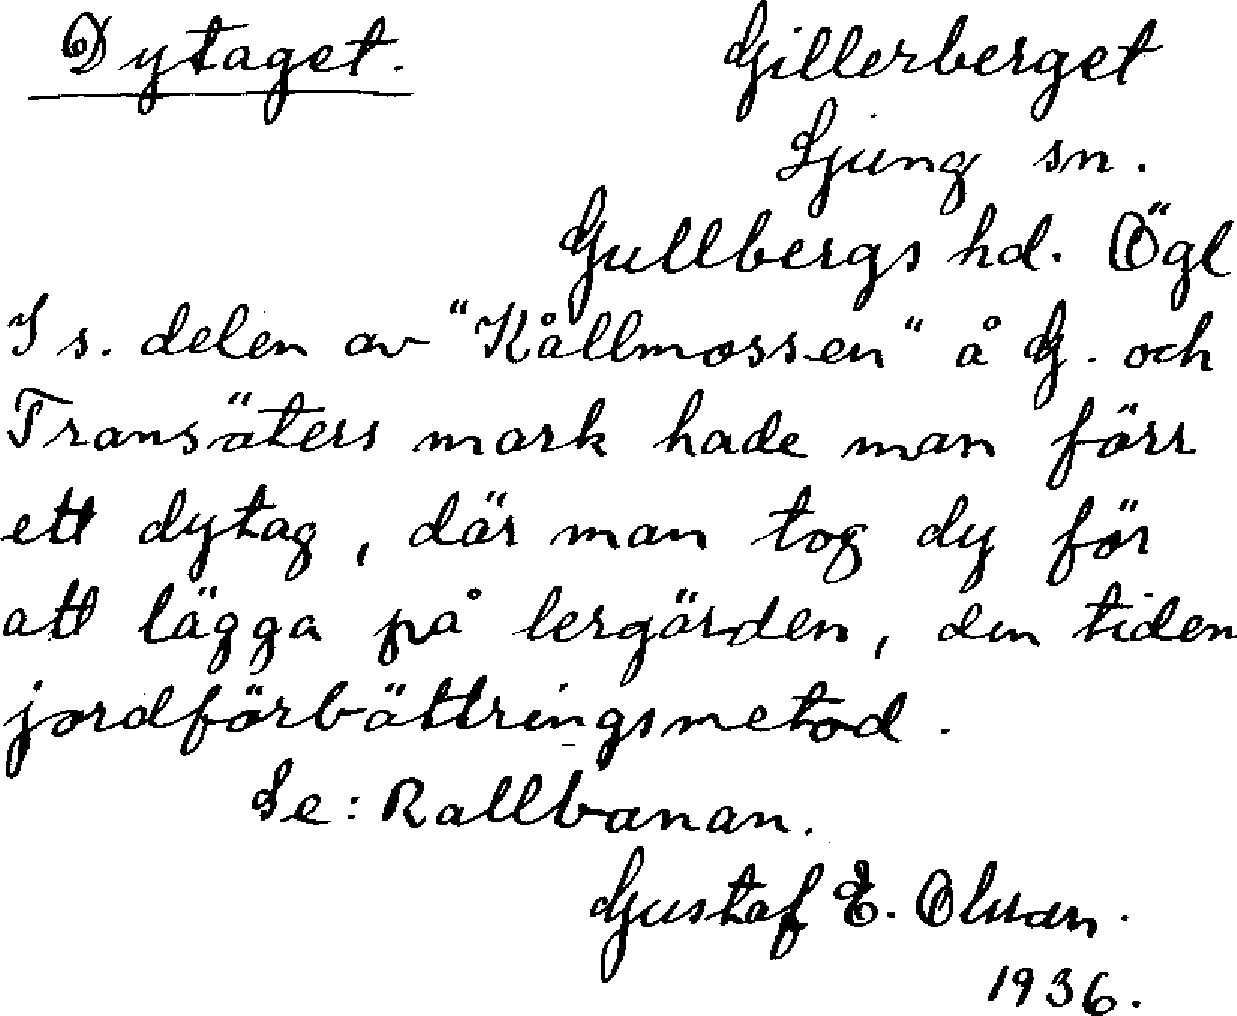 Dytaget. Gillerberget
Ljung sn.
Gullbergs hd. Ögl
I s. delen av "Kållmossen" å G. och
Transäters mark hade man förr
ett dytag, där man tog dy för
att lägga på lergärden, den tiden
jordförbättringsmetod.
Se: Rallbanan.
Gustaf E. Olsson.
1936.